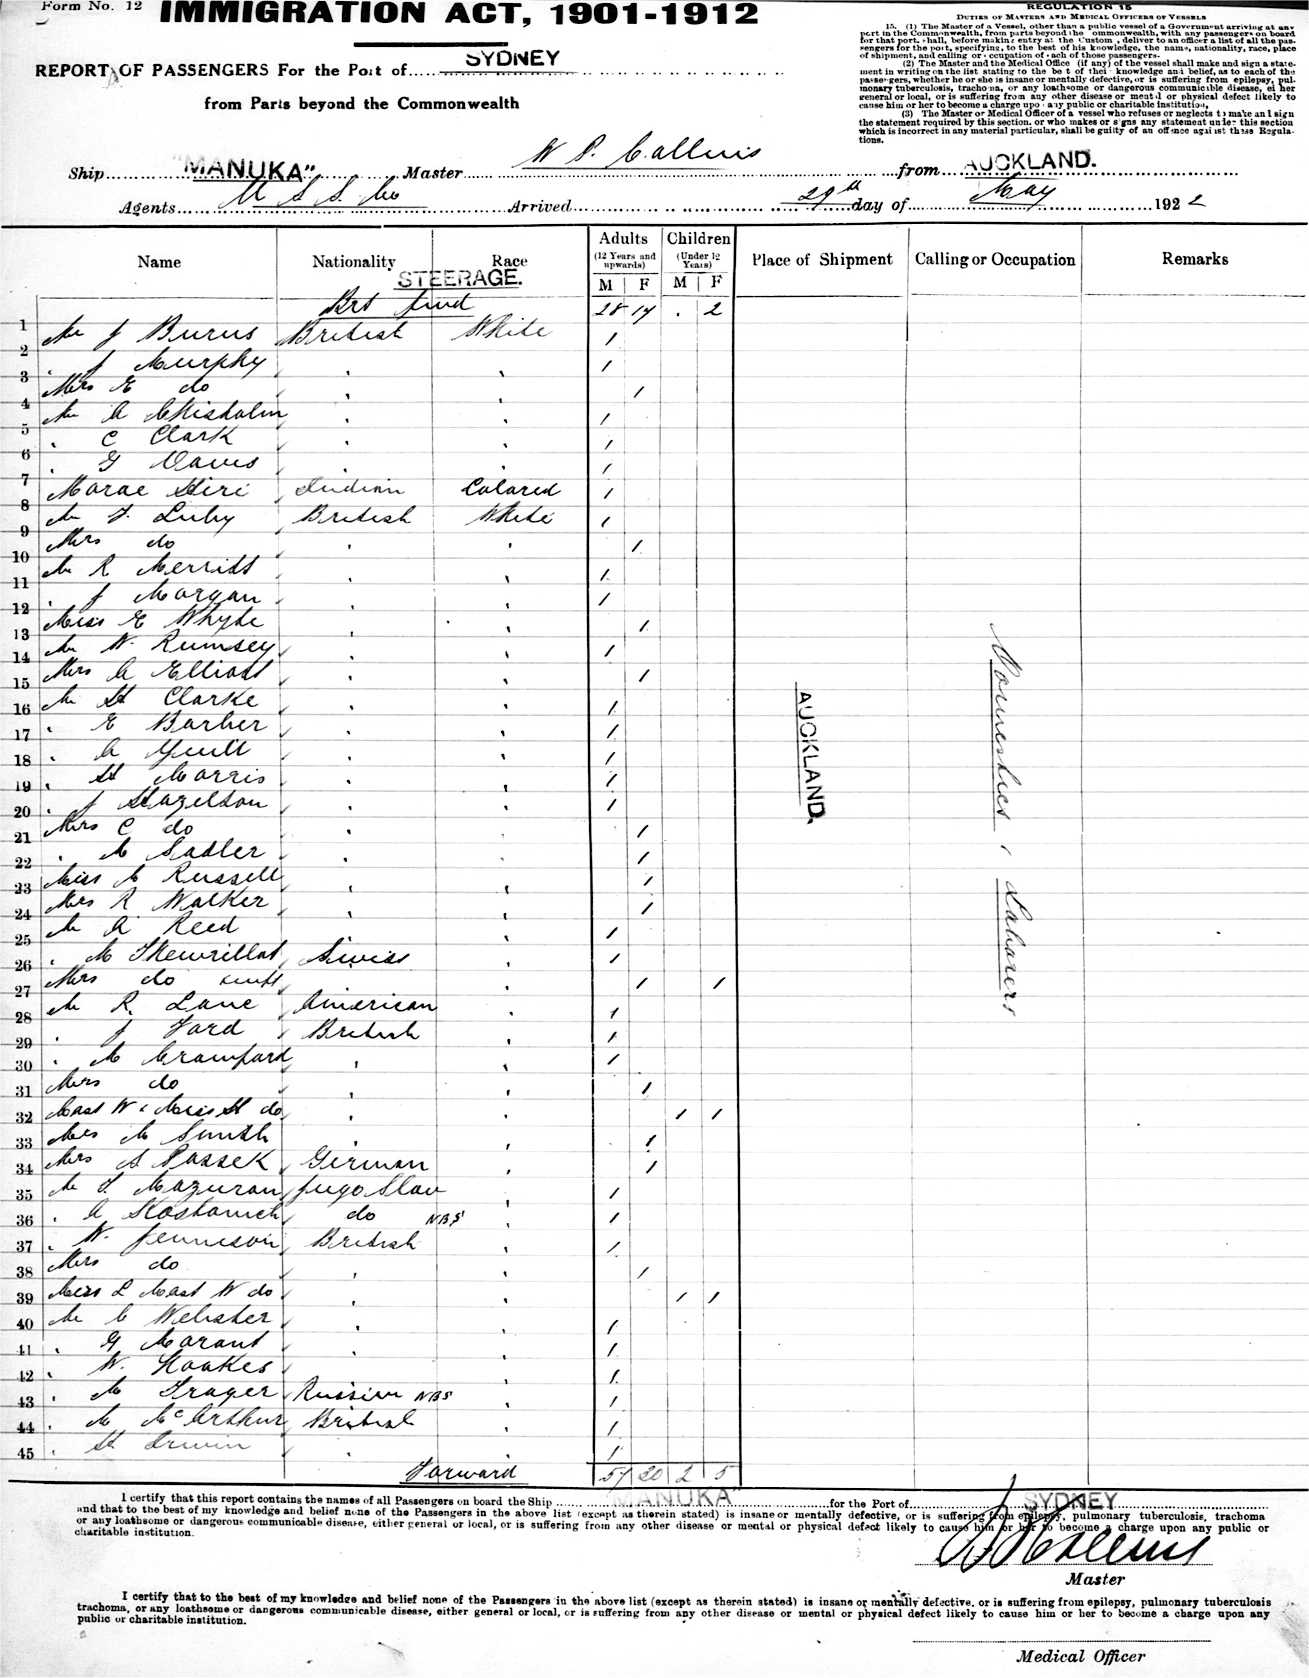 Form No. 12
IMMIGRATION ACT, 1901-1912
REPORT OF PASSENGERS For the Port of SYDNEY
from Parts beyond the Commonwealth
REGULATION 15
DUTIES OF MASTERS AND MEDICAL OFFICERS OF VESSELS
15. (1) The Master of a Vessel, other than a public vessel of a Government arriving at any
port in the Commonwealth, from parts beyond the ommonwealth, with any passengers on board
for that port, shall, before making entry at the Custom , deliver to an officer a list of all the pas-
sengers for the port, specifying, to the best of his knowledge, the name, nationality, race, place
of shipment, and calling or occupation of each of those passengers.
(2) The Master and the Medical Office (if any) of the vessel shall make and sign a state-
ment in writing on the list stating to the be t of their knowledge and belief, as to each of the
passengers, whether he or she is insane or mentally defective, or is suffering from epilepsy, pul-
monary tuberculosis, trachoma, or any loathsome or dangerous communicable disease, ei her
general or local, or is suffering from any other disease or mental or physical defect likely to
cause him or her to become a charge upon any public or charitable institution.
(3) The Master or Medical Officer of a vessel who refuses or neglects to make and sign
the statement required by this section, or who makes or signs any statement under this section
which is incorrect in any material particular, shall be guilty of an offence against these Regula-
tions.
Ship "MANUKA" Master W P. Collins from AUCKLAND.
Agents U S S. Co Arrived 29th day of May 1922
Name Nationality Race Adults (12 Years and upwards) M F Children (Under 12 Years) M F Place of Shipment Calling or Occupation Remarks
STEERAGE.
Brt fwd 28 14 . 2
1 Mr J Burns British White 1
2 . J Murphy 1
3 Mrs E do 1
4 Mr A Chisholm 1
5 . C Clark 1
6 . G Davis 1
7 Morae Hiri Indian Colored 1
8 Mr F. Luby British White 1
9 Mrs do 1
10 Mr R Merritt 1
11 . J Morgan 1
12 Miss E Whyte 1
13 Mr W. Rumsey 1
14 Mrs A Elliott 1
15 Mr H Clarke 1
16 . E Barber 1
17 . A Yuill 1
18 . H Morris 1
19 . J Hazelton 1
20 Mrs C do 1
21 . M Sadler 1
22 Miss M Russell 1
23 Mrs R Walker 1
24 Mr A Reed 1
25 . M Thevrillat Swiss 1
26 Mrs do inft 1 1
27 Mr R. Lane American 1
28 . J Ford British 1
29 . M Crawford 1
30 Mrs do 1
31 Mast W & Miss H do 1 1
32 Mrs M Smith 1
33 Mrs A Passek German 1
34 Mr S. Mazuran Jugo Slav 1
35 . A Kostanich do NBS 1
36 . W. Jennison British 1
37 Mrs do 1
38 Miss L Mast W do 1 1
39 Mr C Webster 1
40 . G Morant 1
41 . W. Hoakes 1
42 . M Trager Russian NBS 1
43 . M McArthur British 1
44 . H Irwin 1
45
AUCKLAND.
Domestics & Laborers
Forward 54 20 2 5
I certify that this report contains the names of all Passengers on board the Ship MANUKA for the Port of SYDNEY
and that to the best of my knowledge and belief none of the Passengers in the above list (except as therein stated) is insane or mentally defective, or is suffering from epilepsy, pulmonary tuberculosis, trachoma
or any loathsome or dangerous communicable disease, either general or local, or is suffering from any other disease or mental or physical defect likely to cause him or her to become a charge upon any public or
charitable institution.
W P Collins
Master
I certify that to the best of my knowledge and belief none of the Passengers in the above list (except as therein stated) is insane or mentally defective, or is suffering from epilepsy, pulmonary tuberculosis
trachoma, or any loathsome or dangerous communicable disease, either general or local, or is suffering from any other disease or mental or physical defect likely to cause him or her to become a charge upon any
public or charitable institution.
Medical Officer